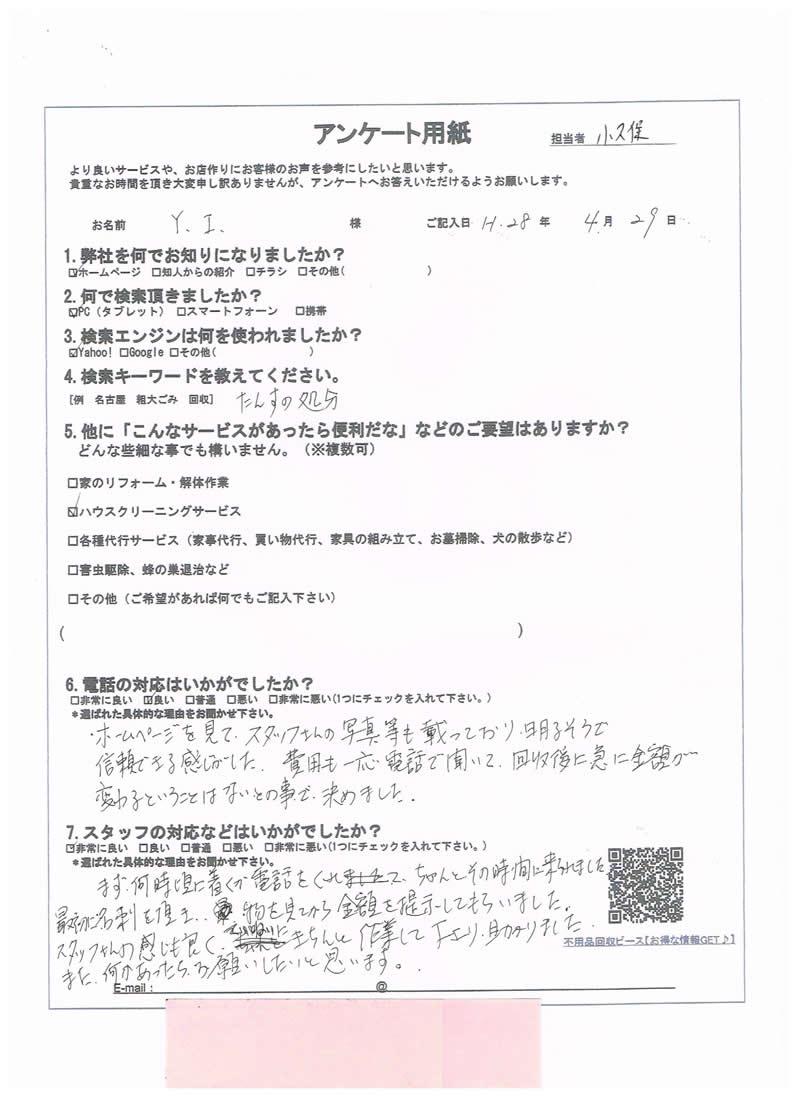 アンケート用紙
担当者 小久保
より良いサービスや、お店作りにお客様のお声を参考にしたいと思います。
貴重なお時間を頂き大変申し訳ありませんが、アンケートへお答えいただけるようお願いします。
お名前 Y. I. 様 ご記入日 H.28 年 4 月 29 日
1.弊社を何でお知りになりましたか?
☑ホームページ □知人からの紹介 □チラシ □その他( )
2.何で検索頂きましたか?
☑PC(タブレット) □スマートフォーン □携帯
3.検索エンジンは何を使われましたか?
☑Yahoo! □Google □その他( )
4.検索キーワードを教えてください。
[例 名古屋 粗大ごみ 回収] たんすの処分
5.他に「こんなサービスがあったら便利だな」などのご要望はありますか?
どんな些細な事でも構いません。(※複数可)
□家のリフォーム・解体作業
☑ハウスクリーニングサービス
□各種代行サービス(家事代行、買い物代行、家具の組み立て、お墓掃除、犬の散歩など)
□害虫駆除、蜂の巣退治など
□その他(ご希望があれば何でもご記入下さい)
( )
6.電話の対応はいかがでしたか?
□非常に良い ☑良い □普通 □悪い □非常に悪い(1つにチェックを入れて下さい。)
*選ばれた具体的な理由をお聞かせ下さい。
・ホームページを見て、スタッフさんの写真等も載っており、明るそうで
信頼できる感じがした。費用も一応電話で聞いて、回収後に急に金額が
変わるということはないとの事で、決めました。
7.スタッフの対応などはいかがでしたか?
☑非常に良い □良い □普通 □悪い □非常に悪い(1つにチェックを入れて下さい。)
*選ばれた具体的な理由をお聞かせ下さい。
まず、何時頃に着くか電話をくれて、ちゃんとその時間に来られました
最初に名刺を頂き、物を見てから金額を提示してもらいました。
スタッフさんの感じも良く、ていねいにきちんと作業して下さり、助かりました。
また、何かあったら、お願いしたいと思います。
不用品回収ピース【お得な情報GET♪】
E-mail : @